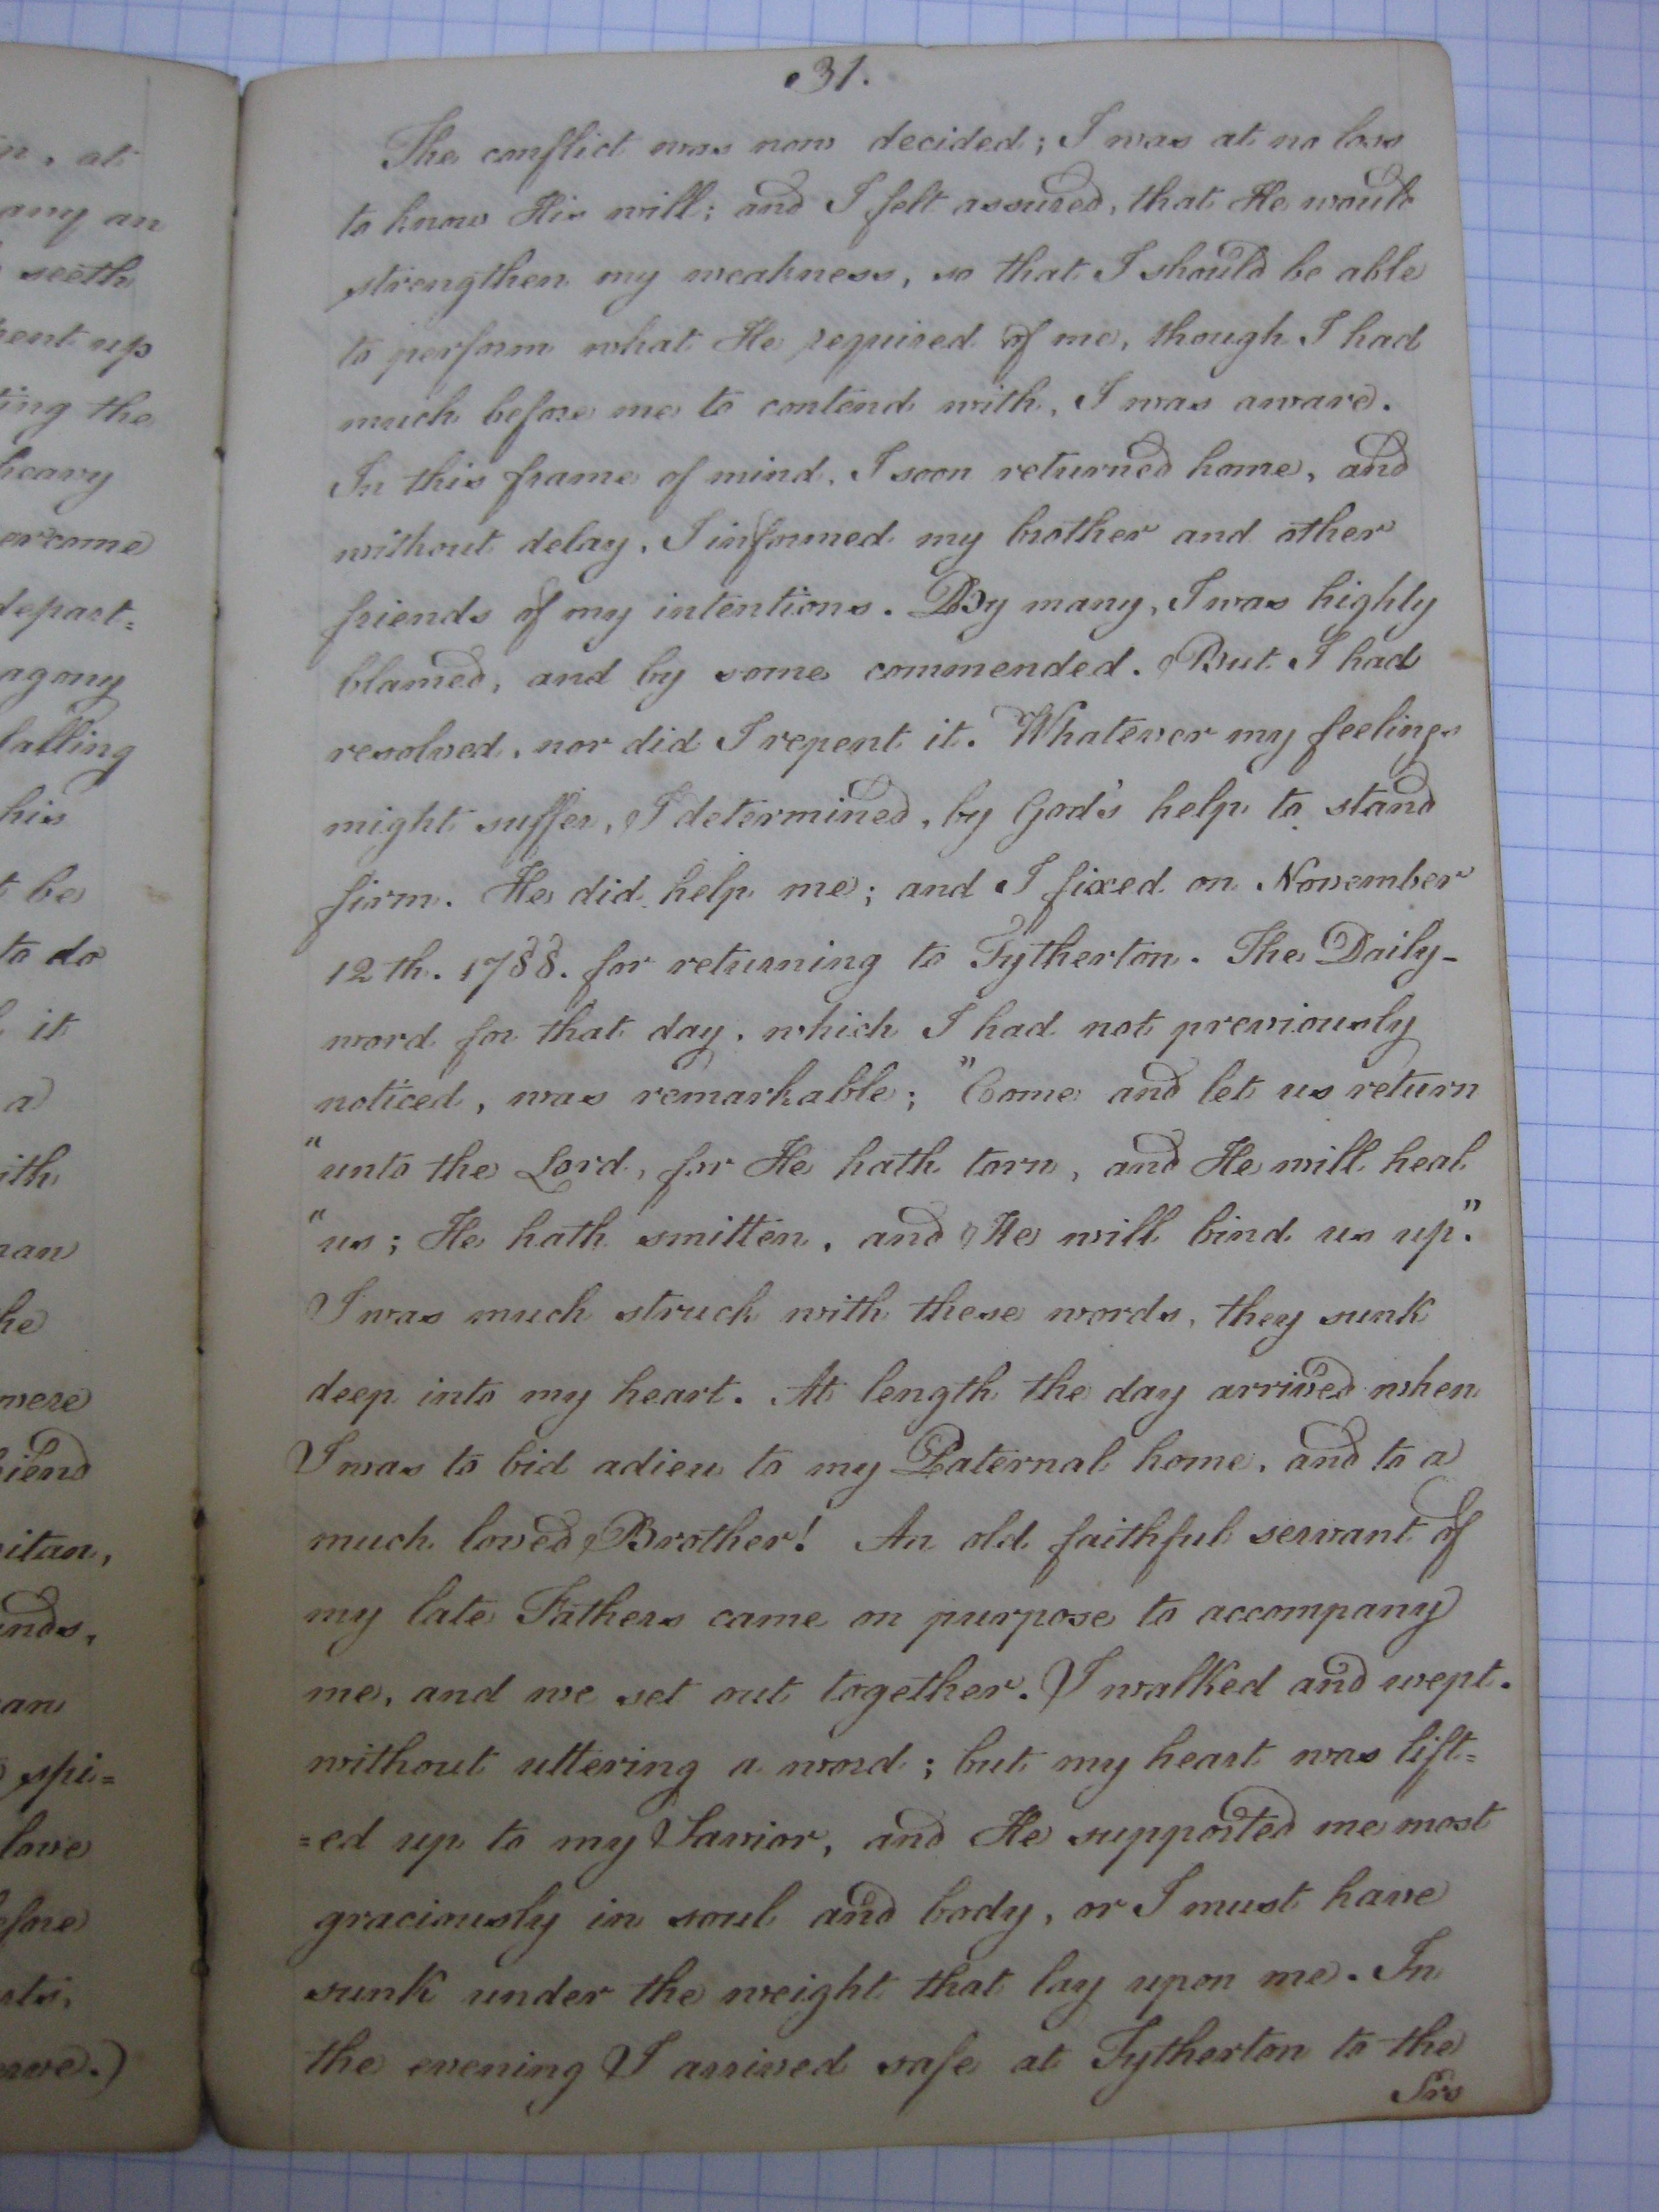 n, at
any an
seeth
ent up
ting the
heavy
ercome
depart=
agony
falling
his
t be
to do
it
a
ith
man
he
were
riend
itan,
unds,
an
spi=
love
efore
ats,
erve.)
31.
The conflict was now decided; I was at no loss
to know His will; and I felt assured, that He would
strengthen my weakness, so that I should be able
to perform what He required of me, though I had
much before me to contend with, I was aware.
In this frame of mind, I soon returned home, and
without delay, I informed my brother and other
friends of my intentions. By many, I was highly
blamed, and by some commended. But I had
resolved, nor did I repent it. Whatever my feelings
might suffer, I determined, by God's help to stand
firm. He did help me; and I fixed on November
12th. 1788. for returning to Tytherton. The Daily-
word for that day, which I had not previously
noticed, was remarkable; "Come and let us return
"unto the Lord, for He hath torn, and He will heal
"us; He hath smitten, and He will bind us up."
I was much struck with these words, they sunk
deep into my heart. At length the day arrived when
I was to bid adieu to my Paternal home, and to a
much loved Brother! An old faithful servant of
my late Fathers came on purpose to accompany
me, and we set out together. I walked and wept.
without uttering a word; but my heart was lift=
=ed up to my Savior, and He supported me most
graciously in soul and body, or I must have
sunk under the weight that lay upon me. In
the evening I arrived safe at Tytherton to the
Srs